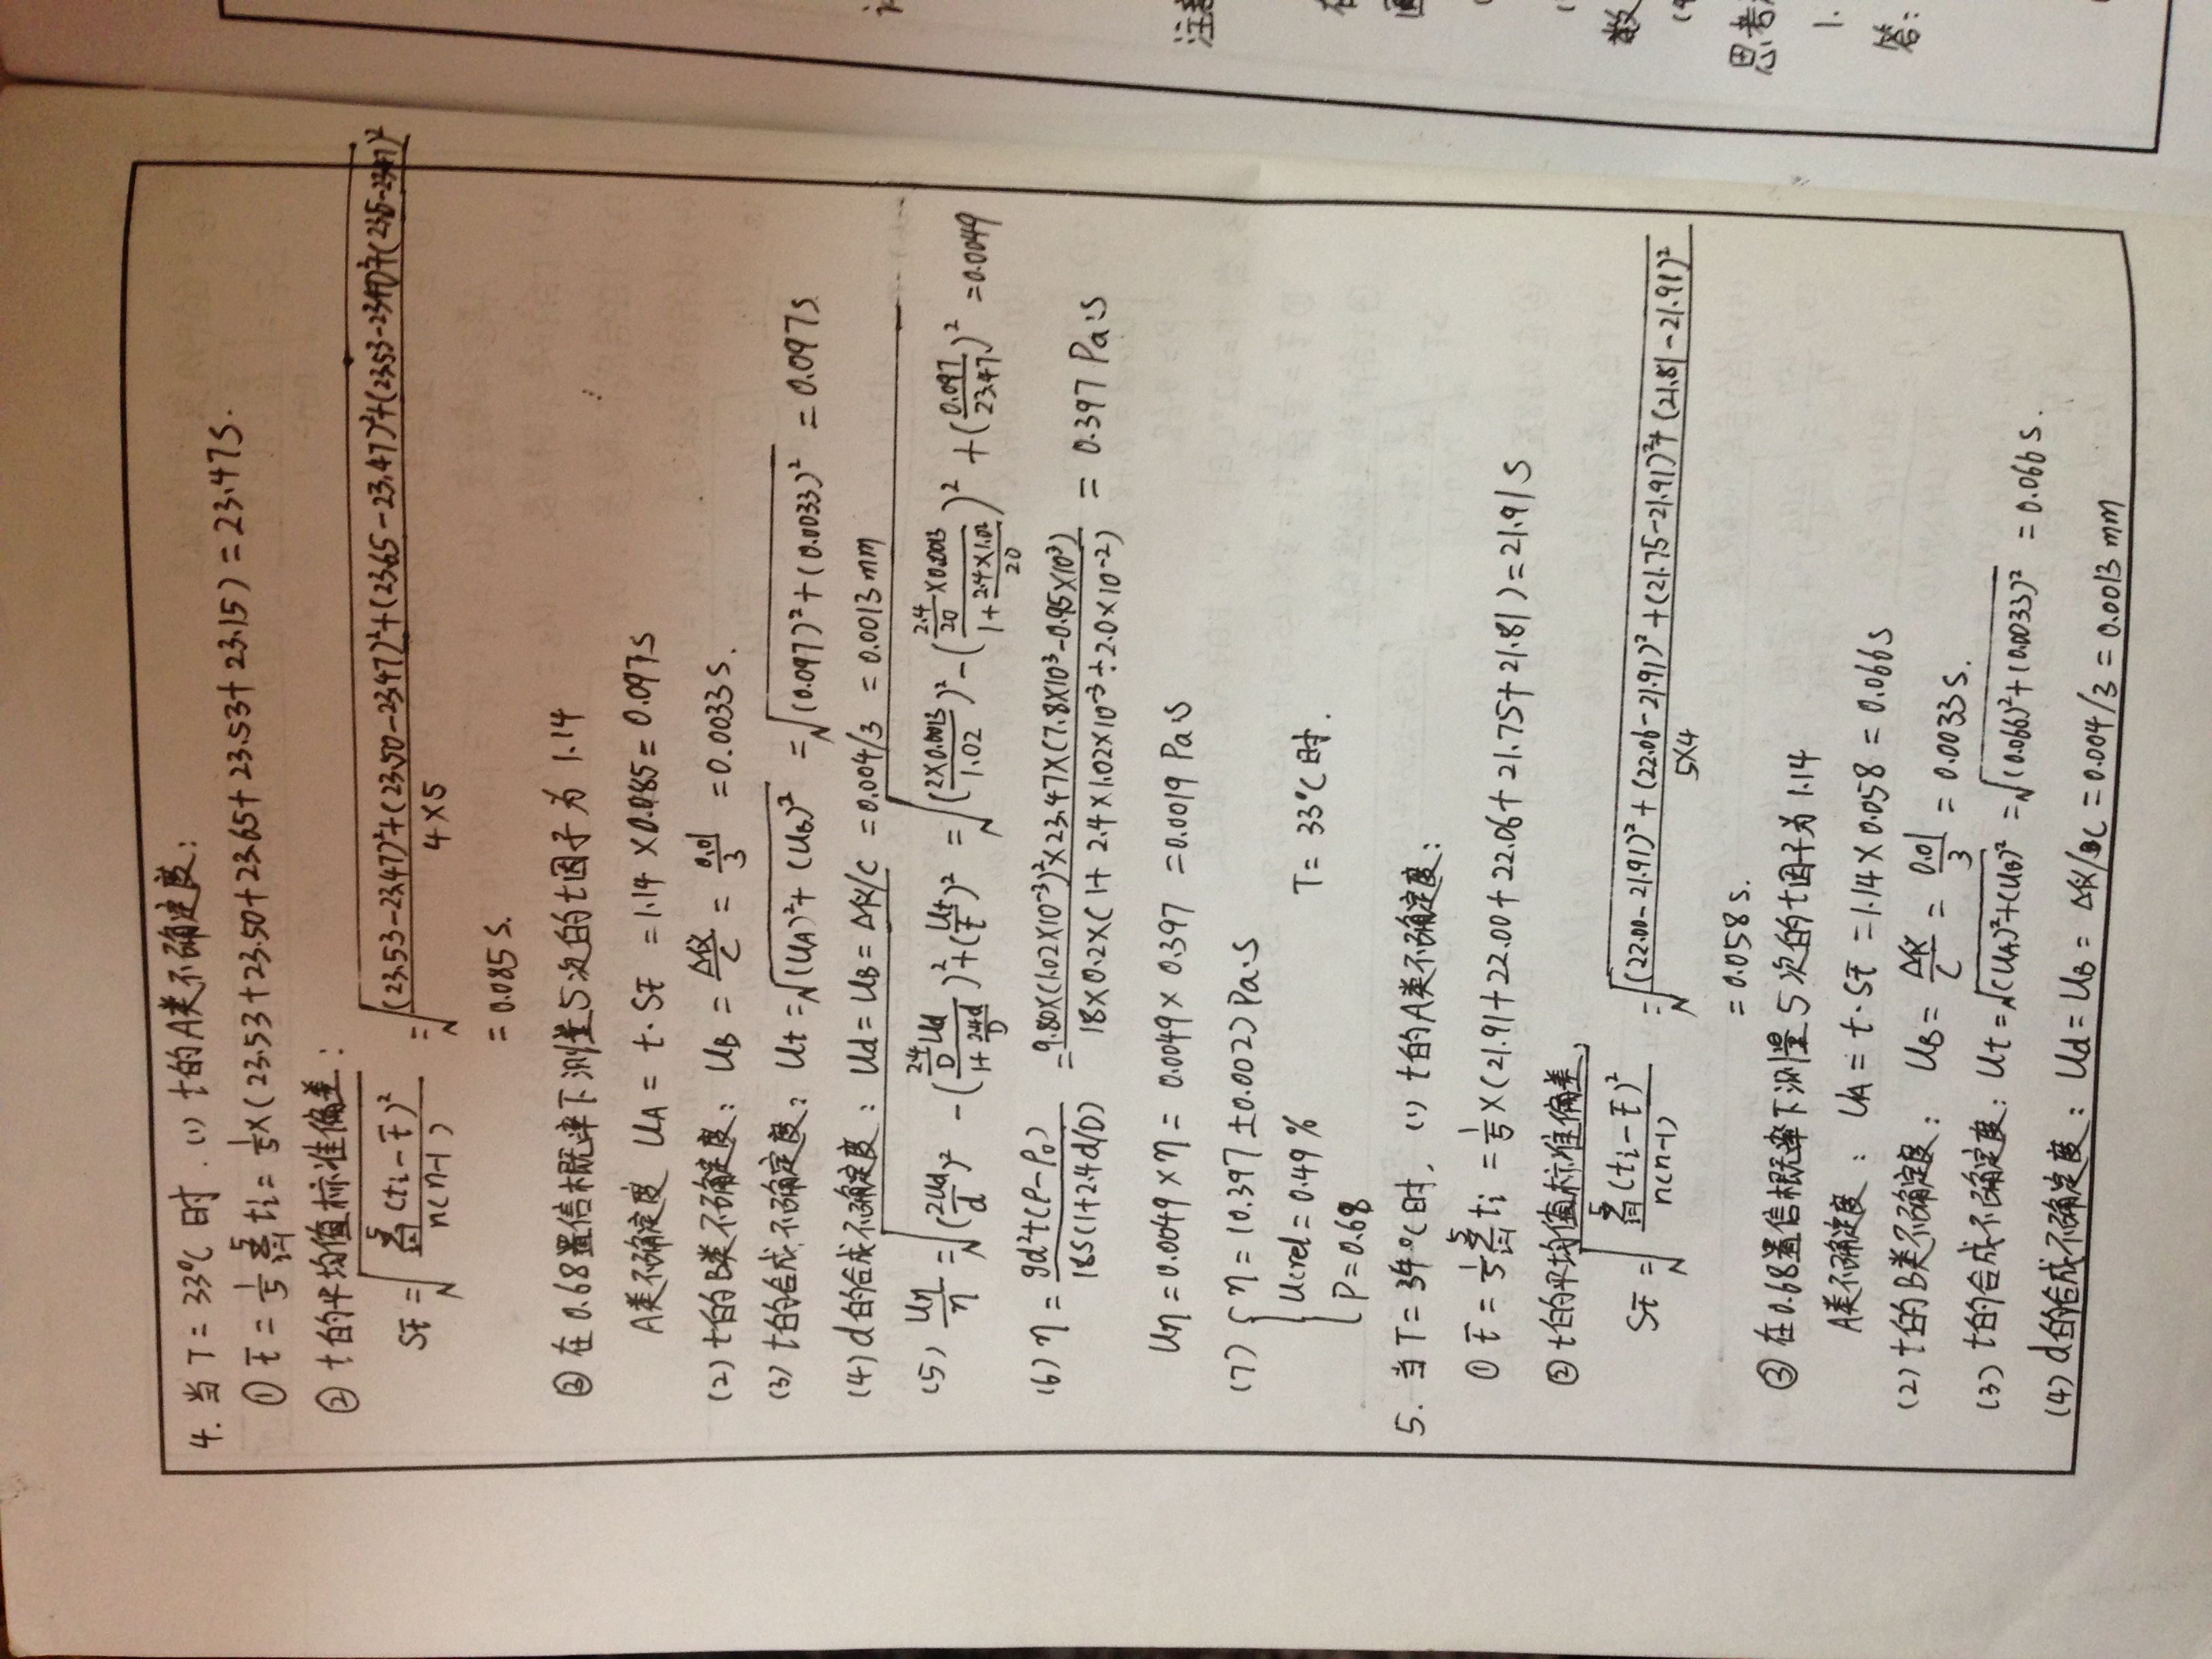 4. 当T=33℃时. (1) t的A类不确定度:
① t̄ = 1/5 Σ(i=1→5) ti = 1/5×(23.53+23.50+23.65+23.53+23.15) = 23.47s.
② t的平均值标准偏差:
St̄ = √(Σ(i=1→5)(ti-t̄)²/n(n-1)) = √((23.53-23.47)²+(23.50-23.47)²+(23.65-23.47)²+(23.53-23.47)²+(23.15-23.47)²/4×5)
= 0.085s.
③ 在0.68置信概率下测量5次的t因子为1.14
A类不确定度 UA = t·St̄ = 1.14×0.085 = 0.097s
(2) t的B类不确定度: UB = Δ仪/C = 0.01/3 = 0.0033s.
(3) t的合成不确定度: Ut = √((UA)²+(UB)²) = √((0.097)²+(0.0033)²) = 0.097s
(4) d的合成不确定度: Ud = UB = Δ仪/C = 0.004/3 = 0.0013mm
(5) Uη/η = √((2Ud/d)² - (2.4/D Ud/1+2.4d/D)² + (Ut/t)²) = √((2×0.0013/1.02)² - (2.4/20×0.0013/1+2.4×1.02/20)² + (0.097/23.47)²) = 0.0049
(6) η = gd²t(ρ-ρ₀)/18S(1+2.4d/D) = 9.80×(1.02×10⁻³)²×23.47×(7.8×10³-0.95×10³)/18×0.2×(1+2.4×1.02×10⁻³÷2.0×10⁻²) = 0.397 Pa·s
Uη = 0.0049×η = 0.0049×0.397 = 0.0019 Pa·s
(7) { η = (0.397±0.002) Pa·s
Ucrel = 0.49% T=33℃时.
P=0.68
5. 当T=34℃时. (1) t的A类不确定度:
① t̄ = 1/5 Σ(i=1→5) ti = 1/5×(21.91+22.00+22.06+21.75+21.81) = 21.91s
② t的平均值标准偏差,
St̄ = √(Σ(i=1→5)(ti-t̄)²/n(n-1)) = √((22.00-21.91)²+(22.06-21.91)²+(21.75-21.91)²+(21.81-21.91)²/5×4)
= 0.058s.
③ 在0.68置信概率下测量5次的t因子为1.14
A类不确定度: UA = t·St̄ = 1.14×0.058 = 0.066s
(2) t的B类不确定度: UB = Δ仪/C = 0.01/3 = 0.0033s.
(3) t的合成不确定度: Ut = √((UA)²+(UB)²) = √((0.066)²+(0.0033)²) = 0.066s.
(4) d的合成不确定度: Ud = UB = Δ仪/C = 0.004/3 = 0.0013mm
注意
数
思考
1.
答: